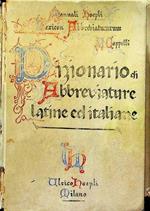 Manuali Hoepli
Lexicon Abbreviaturarum
A. Cappelli
Dizionario di
Abbreviature
latine ed italiane
Ulrico Hoepli
Milano